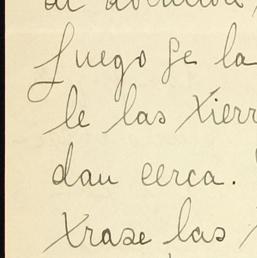 Luego se la
le las tierr
dan cerca.
trase las